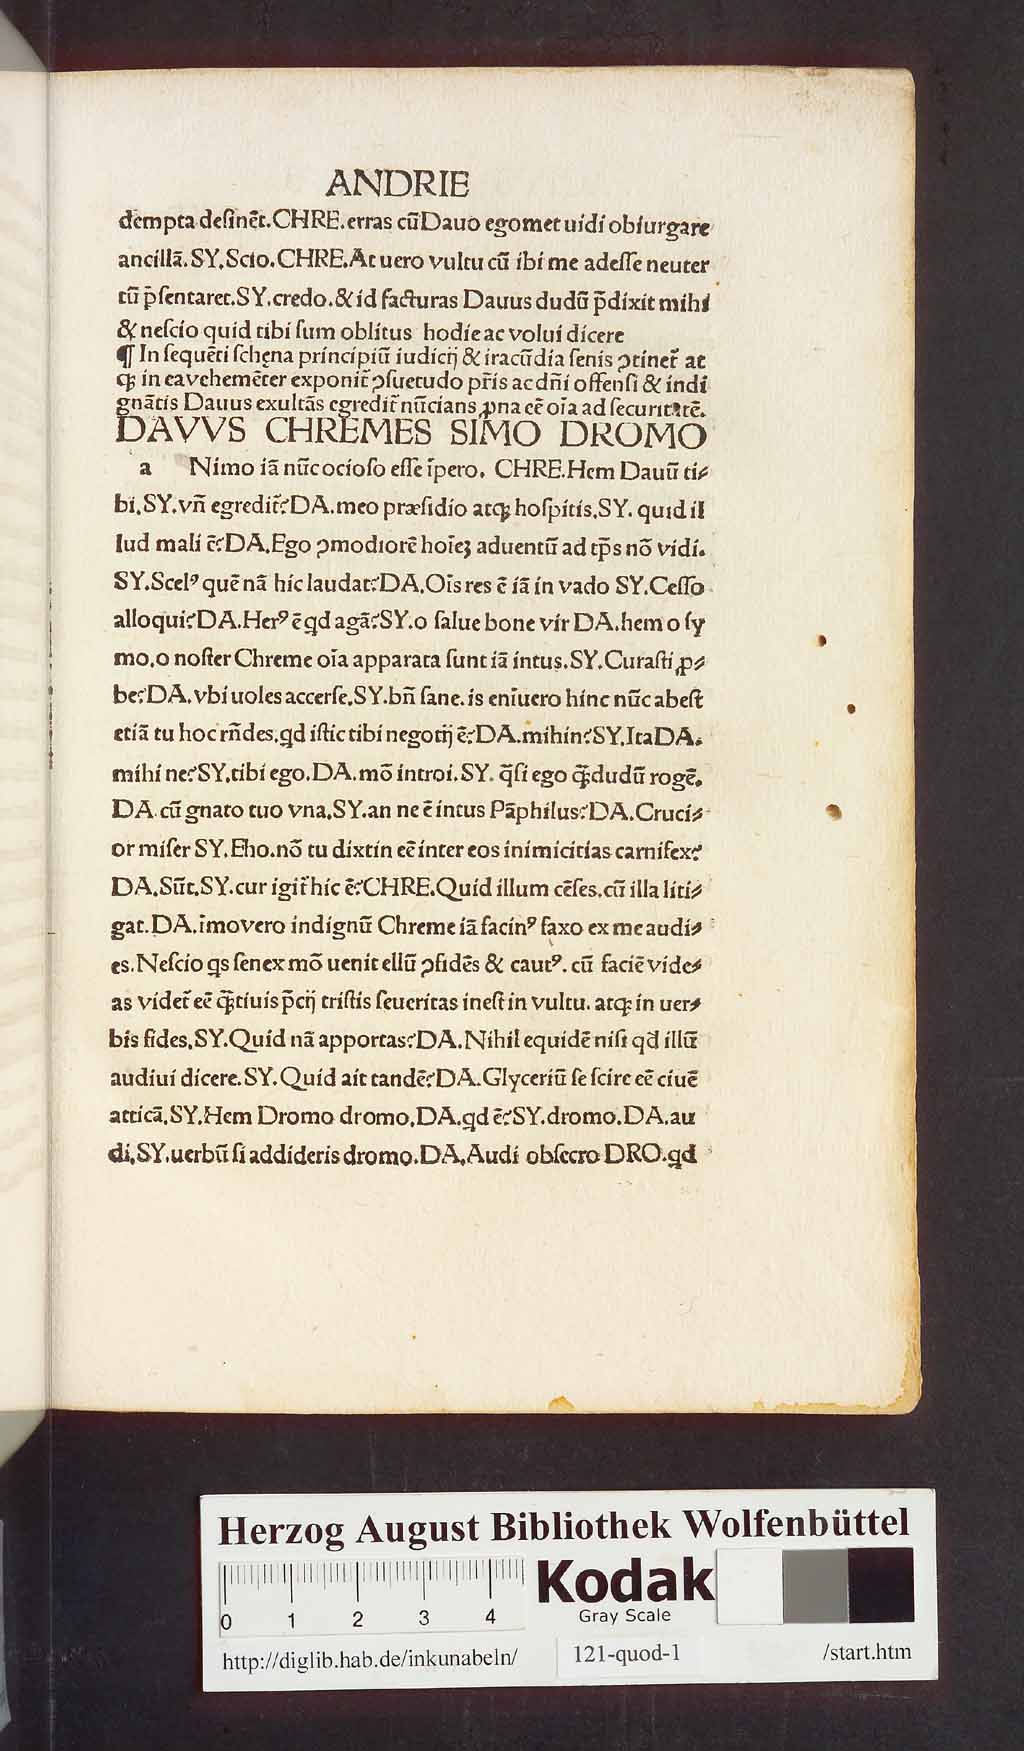 ANDRIE
dempta desinēt.CHRE.erras cūDauo egomet uidi obiurgare
ancillā.SY.Scio.CHRE.At uero vultu cū ibi me adesse neuter
tū p̄sentaret.SY.credo.&id facturas Dauus dudū p̄dixit mihi
&nescio quid tibi sum oblitus hodie ac volui dicere
¶ In sequēti schęna principiū iudicij & iracūdia senis ꝯtinet᷑ at
qꝫ in eavchemēter exponit᷑ ꝯsuetudo pr̄is ac dn̄i offensi & indi
gnātis Dauus exultās egredit᷑ nūcians ꝓna eē oīa ad securitatē.
DAVVS CHREMES SIMO DROMO
a Nimo iā nūc ocioso esse īpero. CHRE.Hem Dauū ti⸗
bi.SY.vn̄ egredit᷑?DA.meo præsidio atqꝫ hospitis.SY. quid il
lud mali ē?DA.Ego ꝯmodiorē hoīeꝫ aduentū ad tp̄s nō vidi.
SY.Scelꝰ quē nā hic laudat?DA.Oīs res ē iā in vado SY.Cesso
alloqui?DA.Herꝰ ē qd agā?SY.o salue bone vir DA.hem o sy
mo.o noster Chreme oīa apparata sunt iā intus.SY.Curasti ꝓ⸗
be?DA.vbi uoles accerse.SY.bn̄ sane.is enīuero hinc nūc abest
etiā tu hoc rn̄des.qd istic tibi negotij ē?DA.mihin?SY.ItaDA.
mihi ne?SY.tibi ego.DA.mō introi.SY. q̄si ego q̄ꝫdudū rogē.
DA.cū gnato tuo vna.SY.an ne ē intus Pāphilus?DA.Cruci⸗
or miser SY.Eho.nō tu dixtin eē inter eos inimicitias carnifex?
DA.Sūt.SY.cur igit᷑ hic ē?CHRE.Quid illum cēses.cū illa liti⸗
gat.DA.īmovero indignū Chreme iā facinꝰ faxo ex me audi⸗
es.Nescio qs senex mō uenit ellū ꝯfidēs & cautꝰ. cū faciē vide⸗
as videt᷑ eē q̄ꝫtiuis p̄cij tristis seueritas inest in vultu. atqꝫ in uer⸗
bis fides.SY.Quid nā apportas?DA.Nihil equidē nisi qd illū
audiui dicere.SY.Quid ait tandē?DA.Glyceriū se scire eē ciuē
atticā.SY.Hem Dromo dromo.DA.qd ē?SY.dromo.DA.au
di.SY.uerbū si addideris dromo.DA.Audi obsecro DRO.qd
Herzog August Bibliothek Wolfenbüttel
0 1 2 3 4
Kodak
Gray Scale
http://diglib.hab.de/inkunabeln/ 121-quod-1 /start.htm